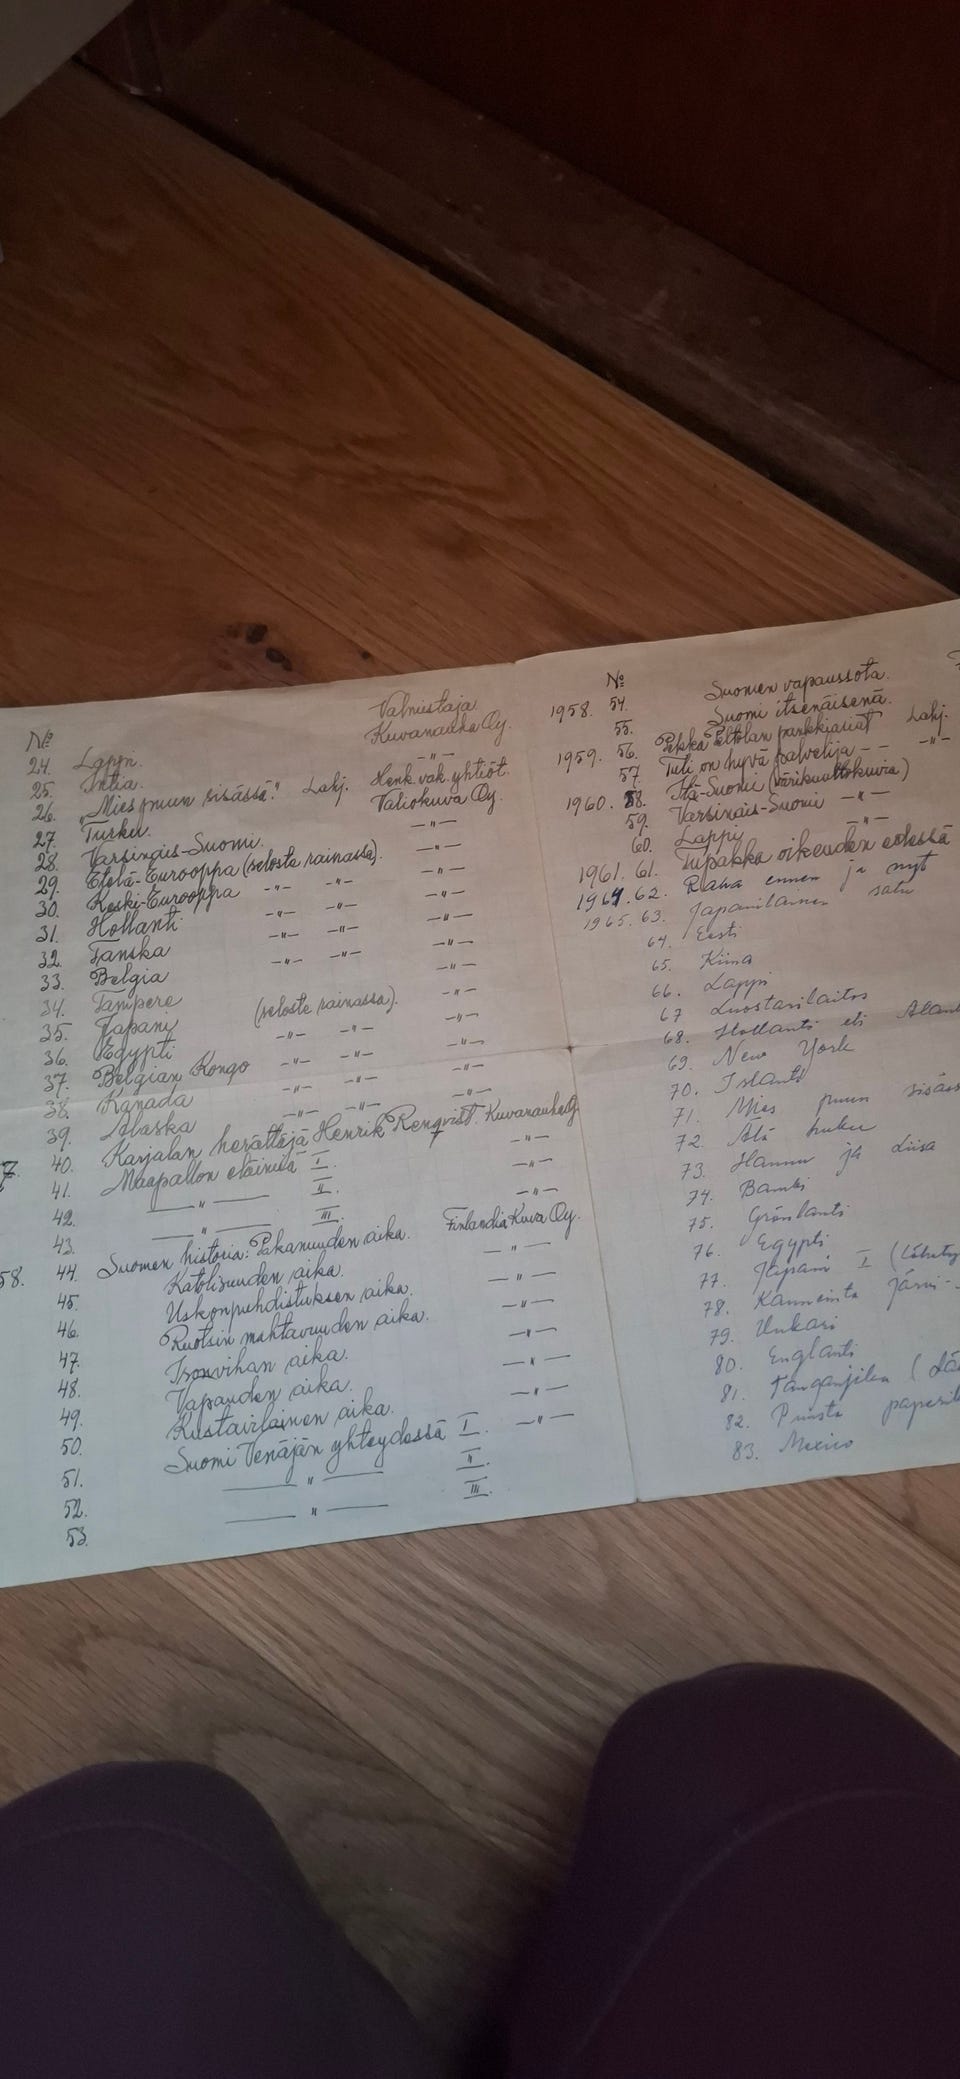 Nº
Valmistaja
24. Lappi. Kuvanauha Oy.
25. Intia. -"-
26. „Mies puun sisässä." Lahj. Henk.vak.yhtiöt.
27. Turku. Valiokuva Oy.
28. Varsinais-Suomi. -"-
29. Etelä-Eurooppa (seloste rainassa). -"-
30. Keski-Eurooppa -"- -"- -"-
31. Hollanti -"- -"- -"-
32. Tanska -"- -"- -"-
33. Belgia -"- -"- -"-
34. Tampere -"-
35. Japani (seloste rainassa). -"-
36. Egypti -"- -"- -"-
37. Belgian Kongo -"- -"- -"-
38. Kanada -"- -"- -"-
39. Alaska -"- -"- -"-
7 40. Karjalan herättäjä Henrik Renqvist. Kuvanauha Oy.
41. Maapallon etäinisiä I. -"-
42. -"- II. -"-
43. -"- III. -"-
58. 44. Suomen historia: Pakanuuden aika. Finlandia Kuva Oy.
45. Katolisuuden aika. -"-
46. Uskonpuhdistuksen aika. -"-
47. Ruotsin mahtavuuden aika. -"-
48. Isonvihan aika. -"-
49. Vapauden aika. -"-
50. Kustavilainen aika. -"-
51. Suomi Venäjän yhteydessä I. -"-
52. -"- II.
53. -"- III.
Nº
1958. 54. Suomen vapaussota.
55. Suomi itsenäisenä.
1959. 56. Pekka Peltolan pankkiasiat Lahj.
57. Tuli on hyvä palvelija - - -"-
1960. 58. Itä-Suomi (värikuultokuvia)
59. Varsinais-Suomi -"-
60. Lappi -"-
1961. 61. Tupakka oikeuden edessä
1964. 62. Raha ennen ja nyt
1965. 63. Japanilainen satu
64. Eesti
65. Kiina
66. Lappi
67 Luostarilaitos
68. Hollanti eli
69. New York
70. Islanti
71. Mies puun
72. Älä huku
73. Hannu ja Liisa
74. Bambi
75. Grönlanti
76. Egypti
77. Japani I
78. Kauneinta Järvi-
79. Unkari
80. Englanti
81. Tanganjika
82. Puusta
83. Mexico